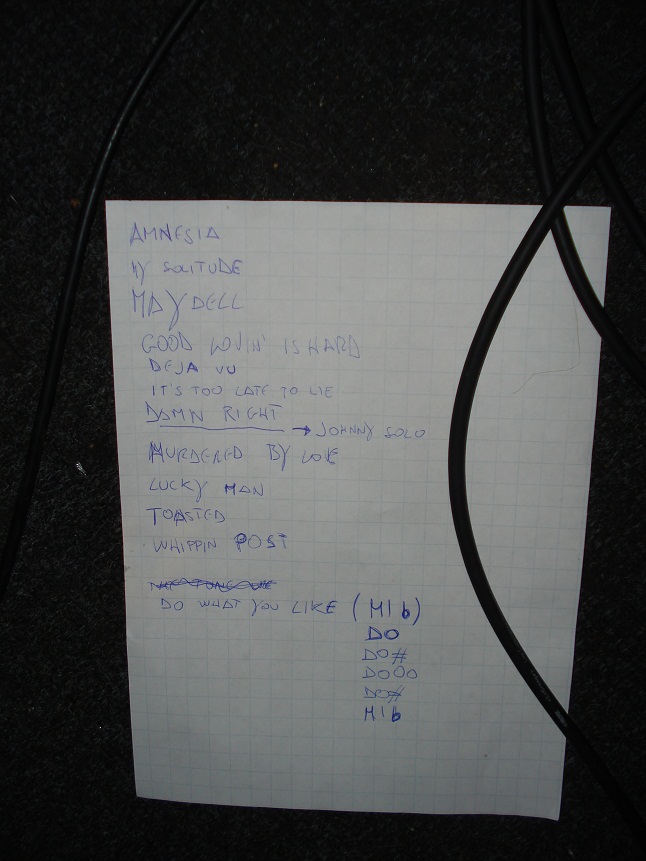 AMNESIA
MY SOLITUDE
MAYDELL
GOOD LOVIN' IS HARD
DEJA VU
IT'S TOO LATE TO LIE
DAMN RIGHT → JOHNNY SOLO
MURDERED BY LOVE
LUCKY MAN
TOASTED
WHIPPIN POST
DO WHAT YOU LIKE (MIb)
DO
DO#
DOOO
DO#
MIb